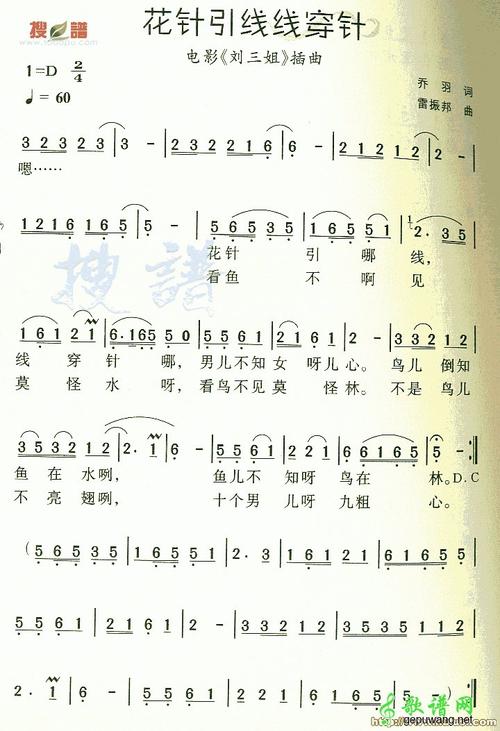 搜谱
花针引线线穿针
电影《刘三姐》插曲
1=D 2/4
♩= 60
乔 羽 词
雷振邦 曲
3 2 3 2 3 | 3 - | 3 2 3 2 2 1 6 | 6 - | 2 1 2 1 2 | 2 1 6 1 6 5
嗯……
1 2 1 6 1 6 5 | 5 - | 5 6 5 3 5 | 1 6 5 5 1 | 2· 3 5
花针 引 哪 线，
看鱼 不 啊 见
搜谱
1 6 1 2 1 | 6· 1 6 5 5 0 | 5 5 6 1 | 5 5 6 1 2 | 3 3 2 1
线 穿 针 哪，男儿 不知 女 呀儿 心。鸟儿 倒知
莫 怪 水 呀，看鸟 不见 莫 怪 林。不是 鸟儿
3 5 3 2 1 2 | 2· 1 | 6 - | 5 5 6 1 | 5 6 1 2 | 6 1 6 5 | 6 - :||
鱼 在 水咧， 鱼儿 不 知呀 鸟在 林。D.C
不 亮 翅咧， 十个 男 儿呀 九粗 心。
(5 6 5 3 5 | 1 6 5 5 1 | 2· 3 | 1 6 1 2 1 | 6 1 6 5 5
5 5 6 1 | 5 5 6 1 2 | 3 3 2 1 2 | 3 5 3 5 1 1 2
2· 1 | 6 - | 5 5 6 1 | 5 6 1 2 | 6 1 6 5 | 6 - ) :||
歌谱网
gepuwang.net